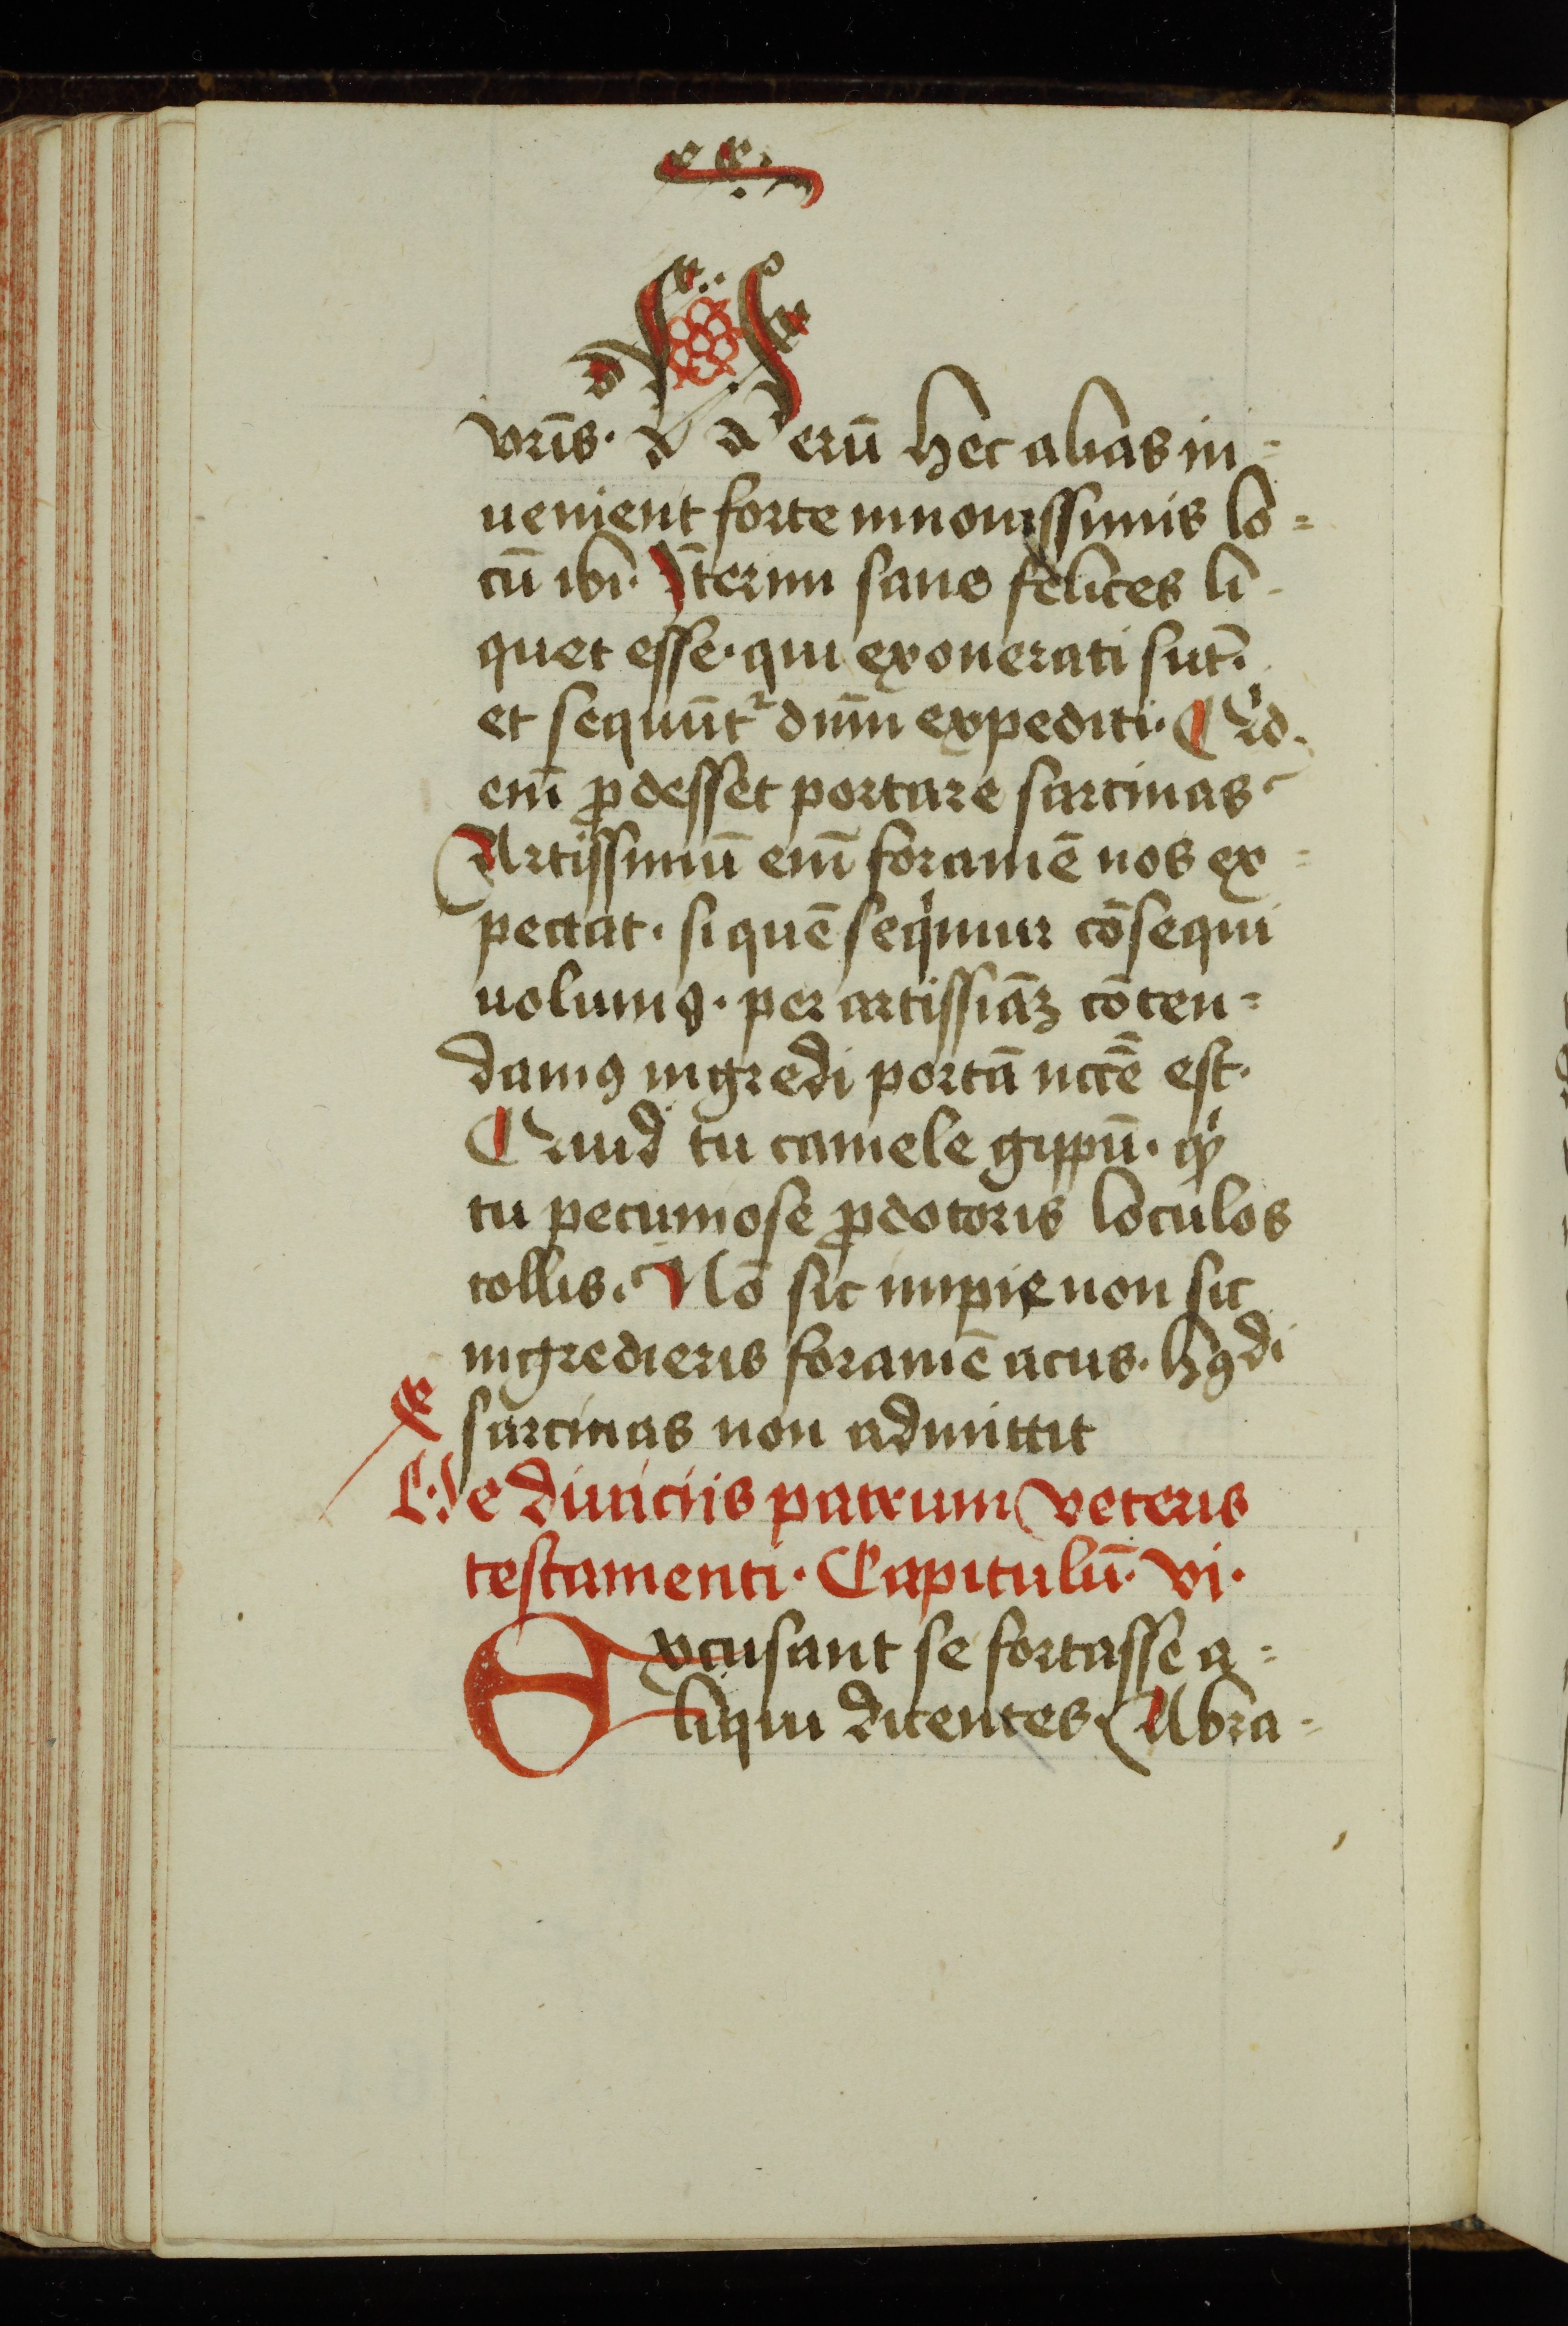 vr̄is. Verū hec alias in=
uenient forte in nouissimis lo=
cū ibi. Īterim sane felices li-
quet esse. qui exonerati sūt.
et sequūtʳ dn̄m expediti. Qͥd
em̄ ꝓdesset portare sarcinas
Artissimū em̄ foramē nos ex=
pectat. si quē seqͥmur cōsequi
uolumꝰ. per artissīāꝫ cōten=
damꝰ ingredi portā nccē est.
Quid tu camele gippū. qͥd
tu pecuniose ꝓditoris loculos
tollis. Nō sic impie non sic
ingredieris foramē acus. hꝰdi
sarcinas non admittit
De diuiciis patrum veteris
testamenti. Capitulū. vi.
Excusant se fortasse a=
liqui dicentes. Abra=